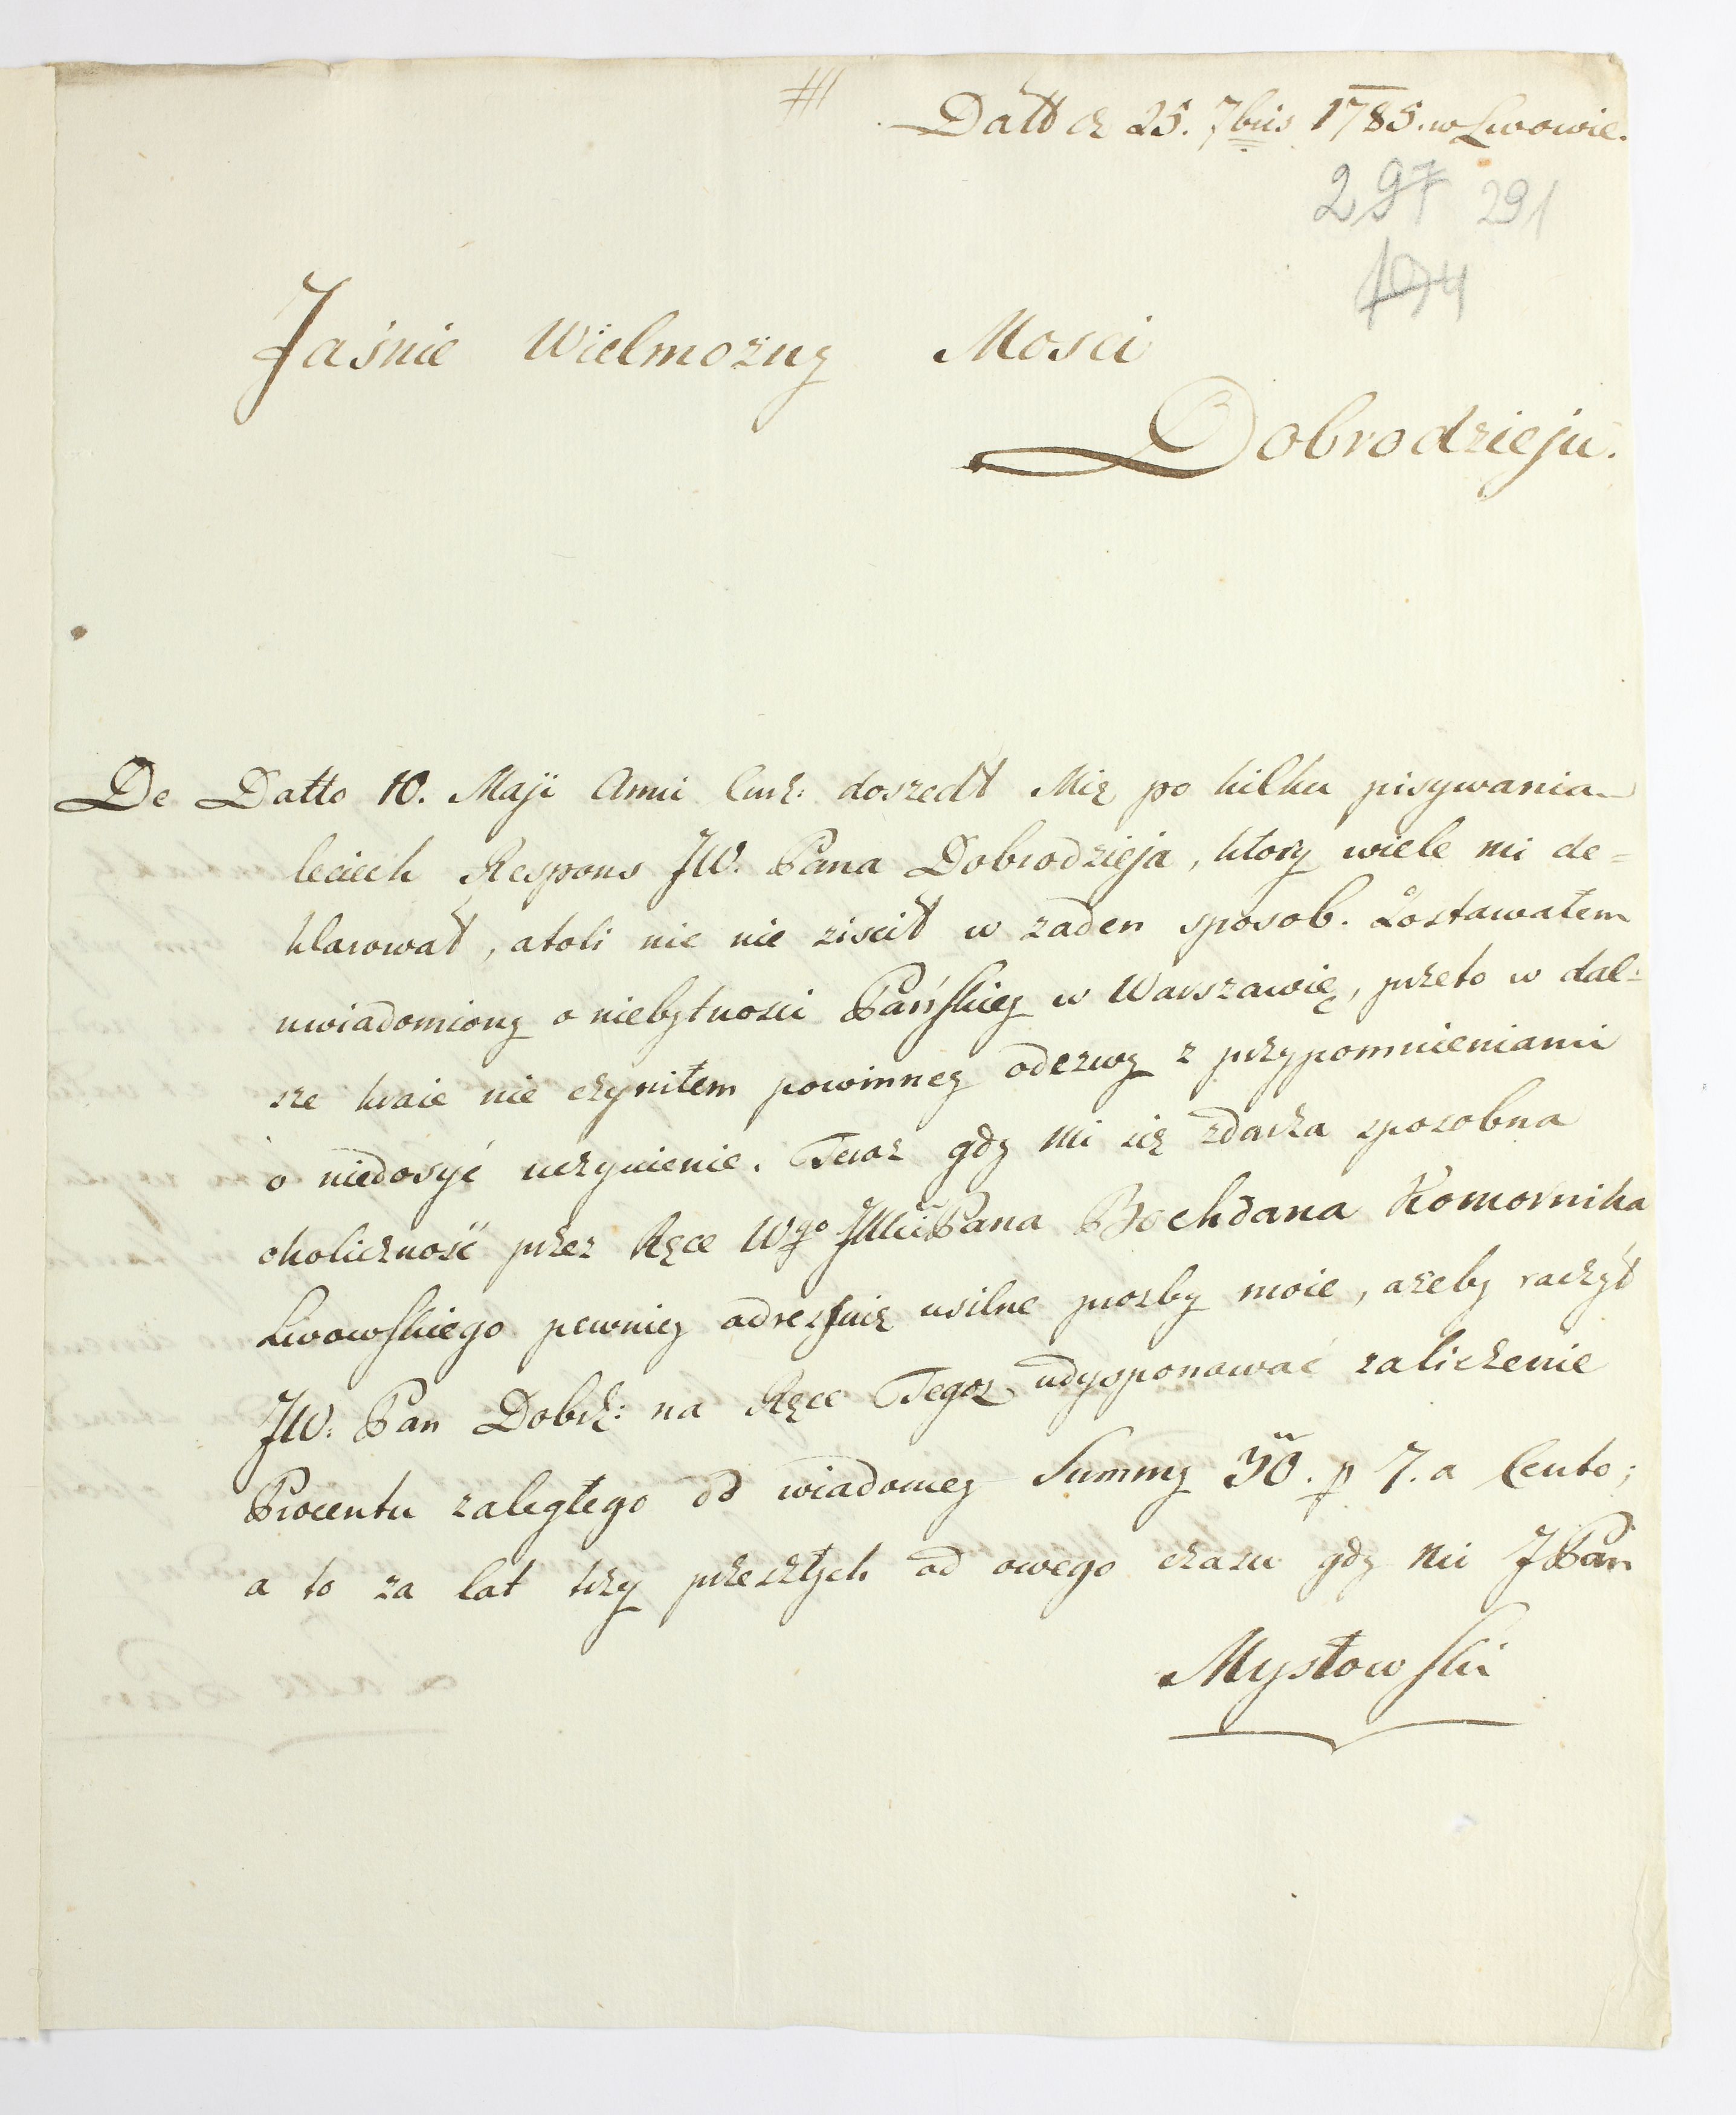 Datt d 25. 7bris 1785. w Lwowie.
297 291
194
Jaśnie Wielmozny Mosci
Dobrodzieju.
De Datto 10. Maji Anni Curr: doszedł Mię po kilku pisywania
leciech Respons JW. Pana Dobrodzieja, ktory wiele mi de=
klarował, atoli nic nie ziscił w zaden sposob. Zostawałem
uwiadomiony o niebytnosci Pańskiey w Warszawię, przeto w dal=
sze kraie nie czyniłem powinney odezwy z przypomnieniami
o niedosyć uczynienie. Teraz gdy mi się zdarza sposobna
okoliczność przez Ręce Wgo JMci Pana Bochdana Komornika
Lwowskiego pewniey adressuię usilne prozby moie, azeby raczył
JW. Pan Dobrz: na Ręce Tegoz udysponować zaliczenie
Procentu zaległego od wiadomey Summy 30. p 7. a Cento;
a to za lat trzy przeszłych od owego czasu gdy mi JPan
Mysłowski